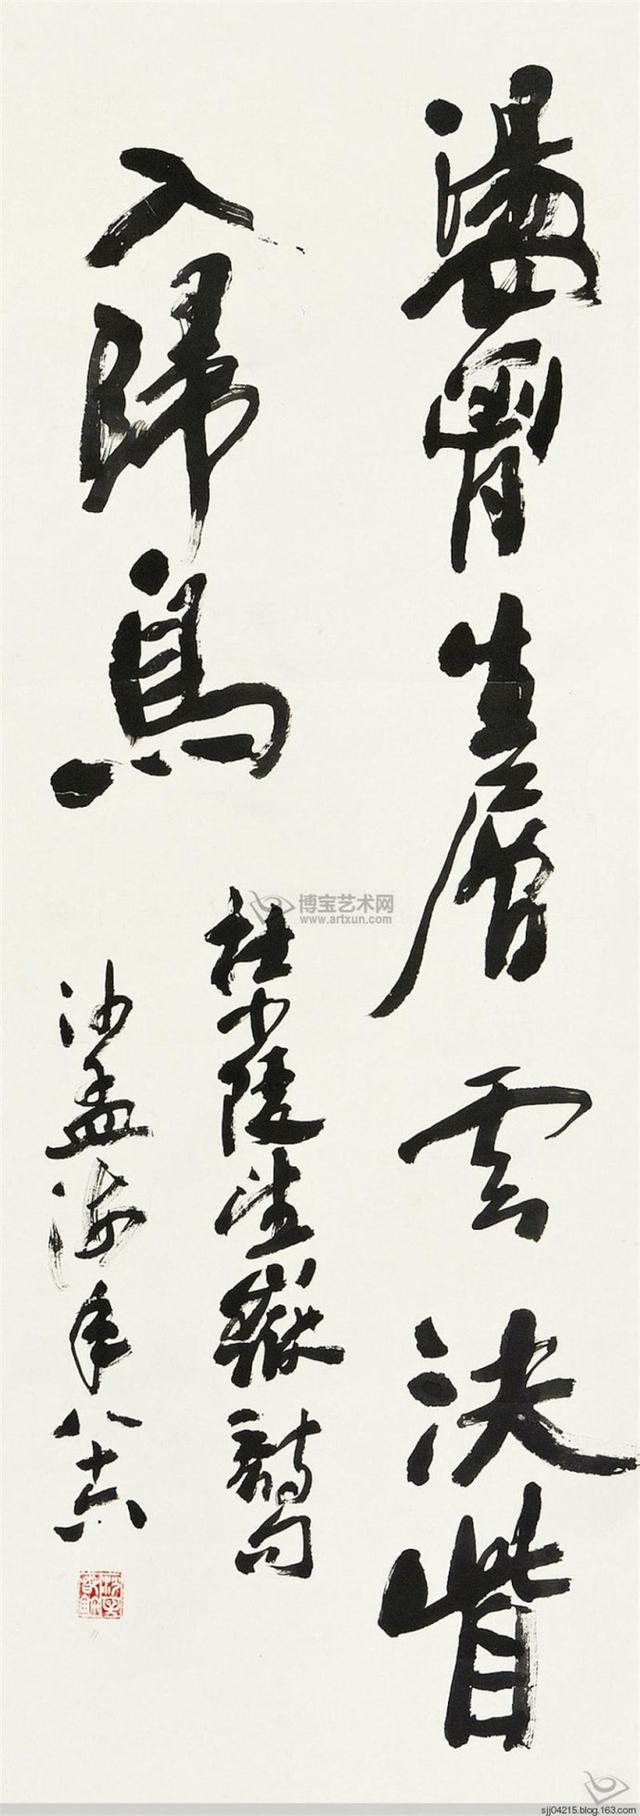 盪胷生層雲決眥
入歸鳥
杜少陵望嶽詩句
沙孟海年八十六
博宝艺术网
www.artxun.com
sjj04215.blog.163.com